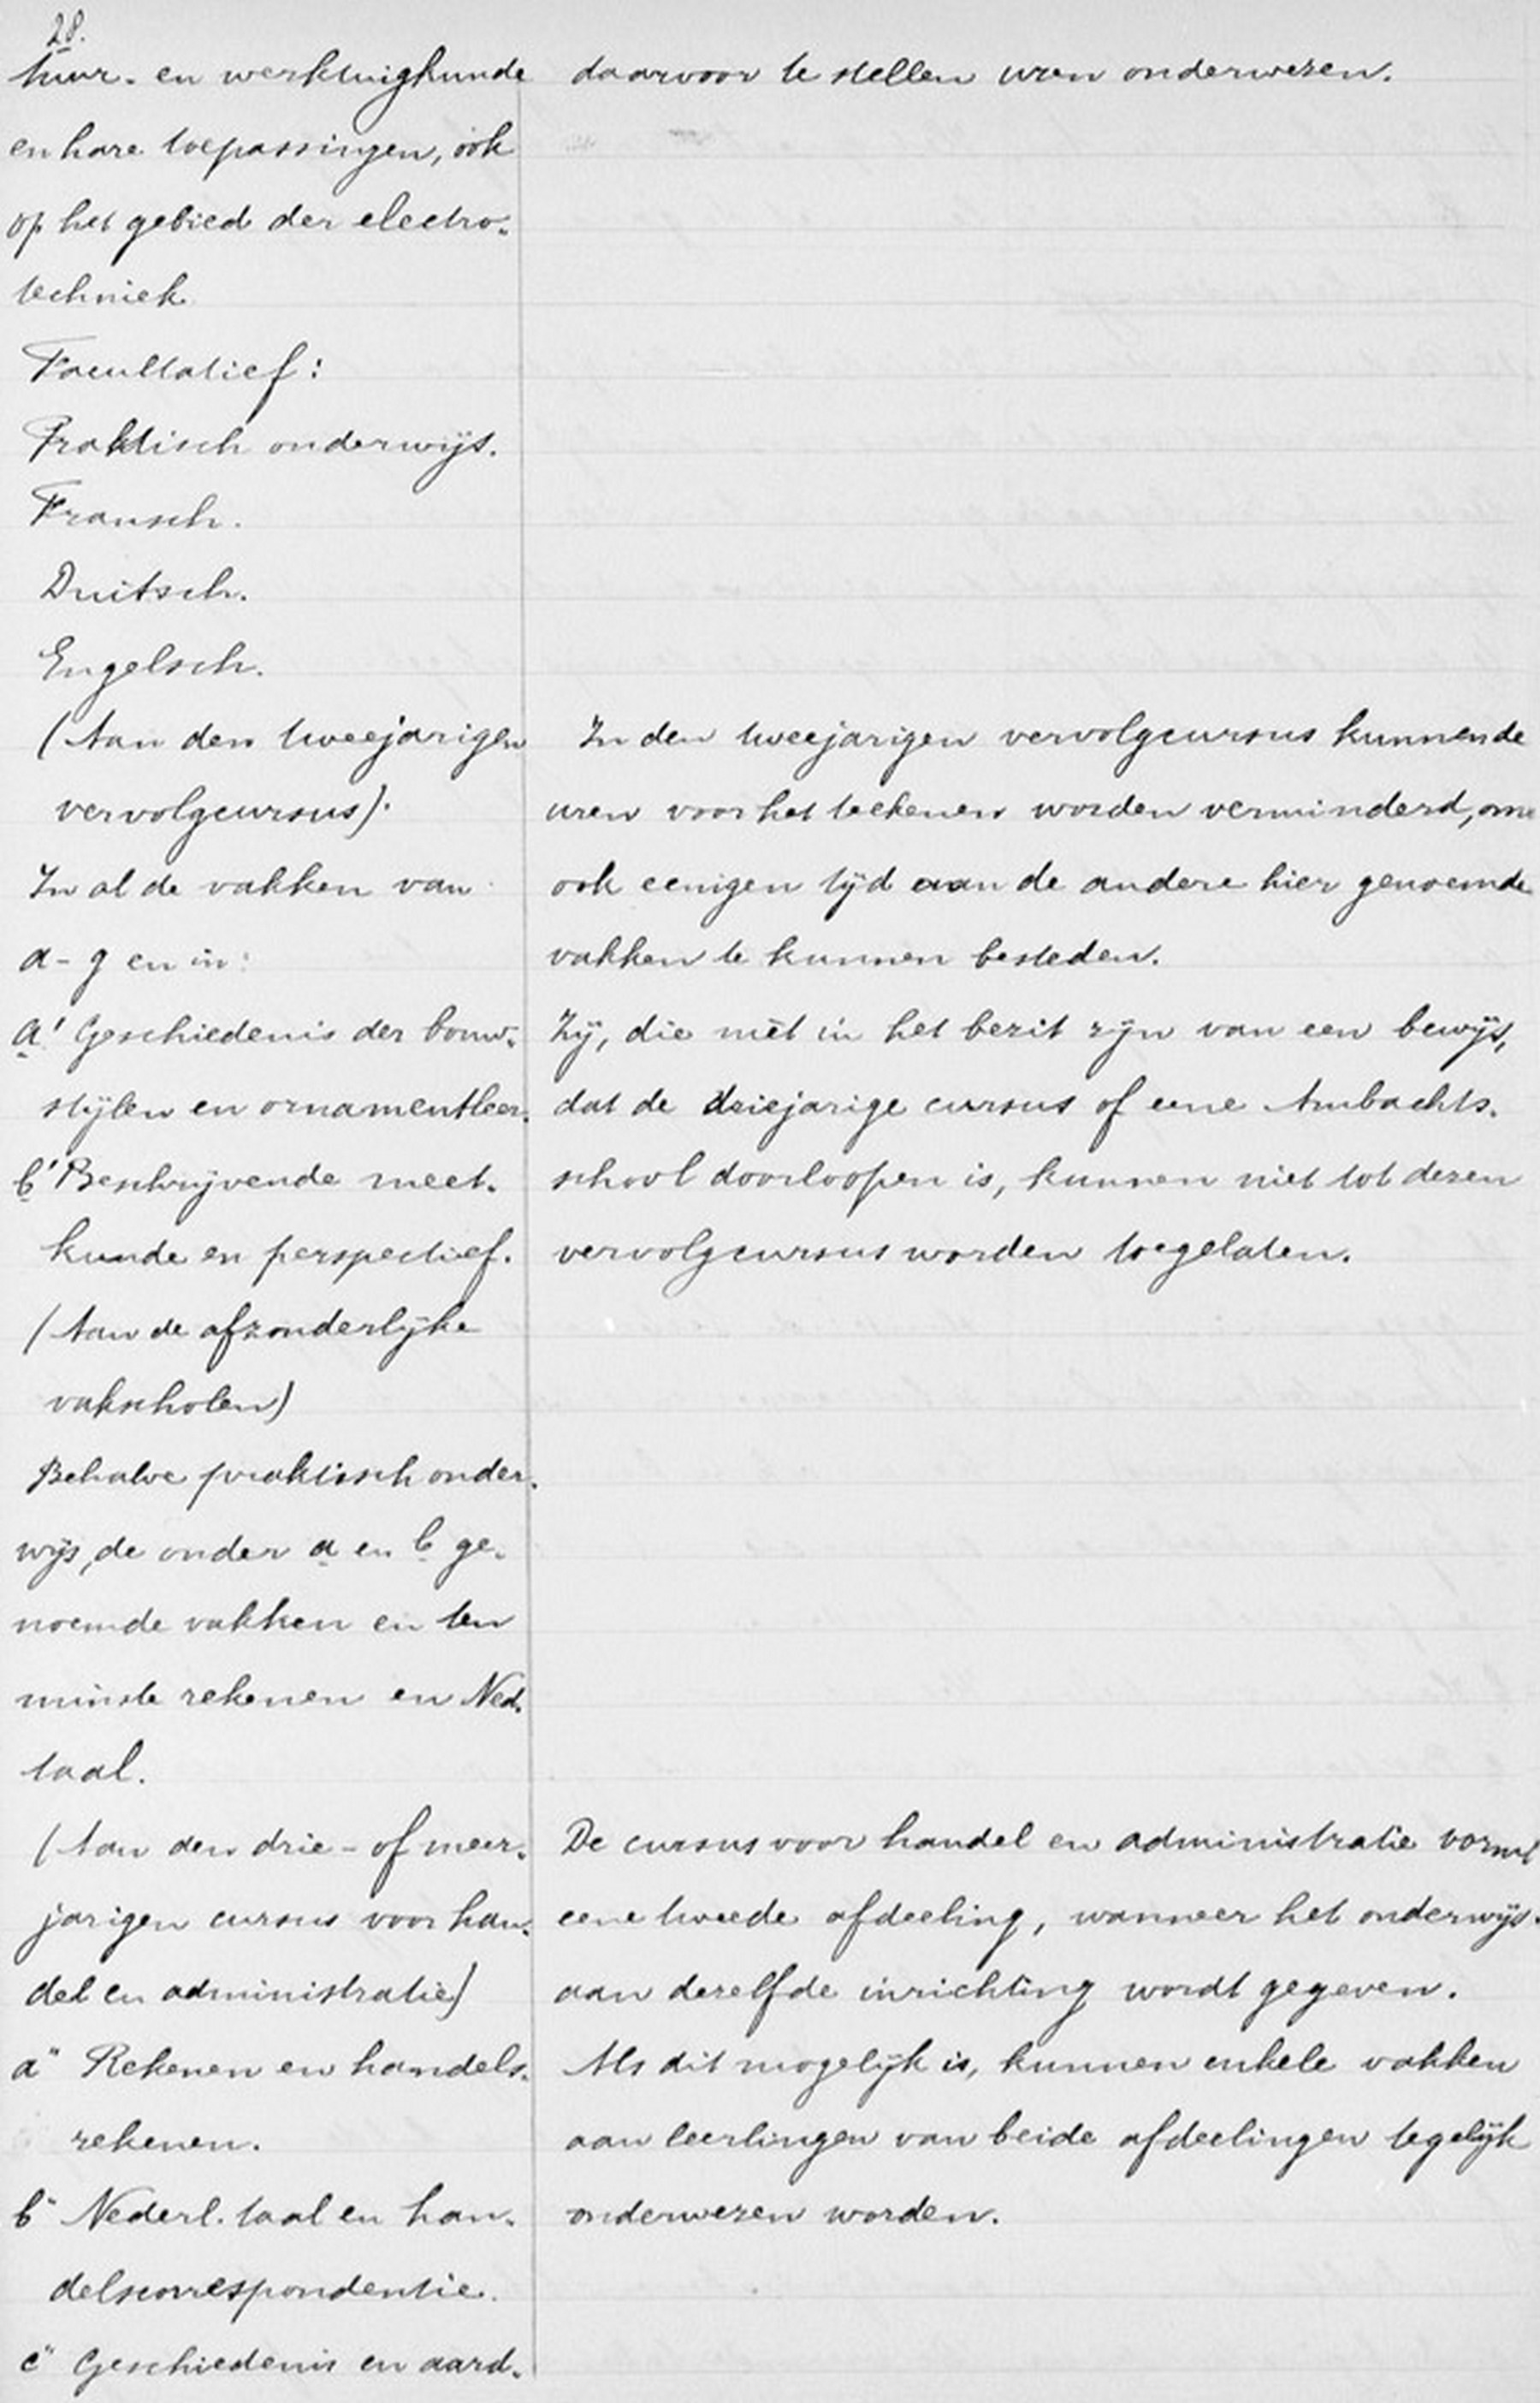 28.
tuur- en werktuigkunde
en hare toepassingen, óók
op het gebied der electro-
techniek
Facultatief:
Praktisch onderwijs.
Fransch.
Duitsch.
Engelsch.
(Aan den tweejarigen
vervolgcursus).
In al de vakken van
a - g en in:
a' Geschiedenis der bouw-
stijlen en ornamentleer.
b' Beschrijvende meet-
kunde en perspectief.
(Aan de afzonderlijke
vakscholen)
Behalve praktisch onder-
wijs, de onder a en b ge-
noemde vakken en ten
minste rekenen en Ned.
taal.
(Aan den drie- of meer-
jarigen cursus voor han-
del en administratie)
a" Rekenen en handels-
rekenen.
b" Nederl. taal en han-
delscorrespondentie.
c" Geschiedenis en aard-
daarvoor te stellen uren onderwezen.
In den tweejarigen vervolgcursus kunnen de
uren voor het teekenen worden verminderd, om
ook eenigen tijd aan de andere hier genoemde
vakken te kunnen besteden.
Zij, die niet in het bezit zijn van een bewijs,
dat de driejarige cursus of eene Ambachts-
school doorloopen is, kunnen niet tot dezen
vervolgcursus worden toegelaten.
De cursus voor handel en administratie vormt
eene tweede afdeeling, wanneer het onderwijs
aan dezelfde inrichting wordt gegeven.
Als dit mogelijk is, kunnen enkele vakken
aan leerlingen van beide afdeelingen tegelijk
onderwezen worden.